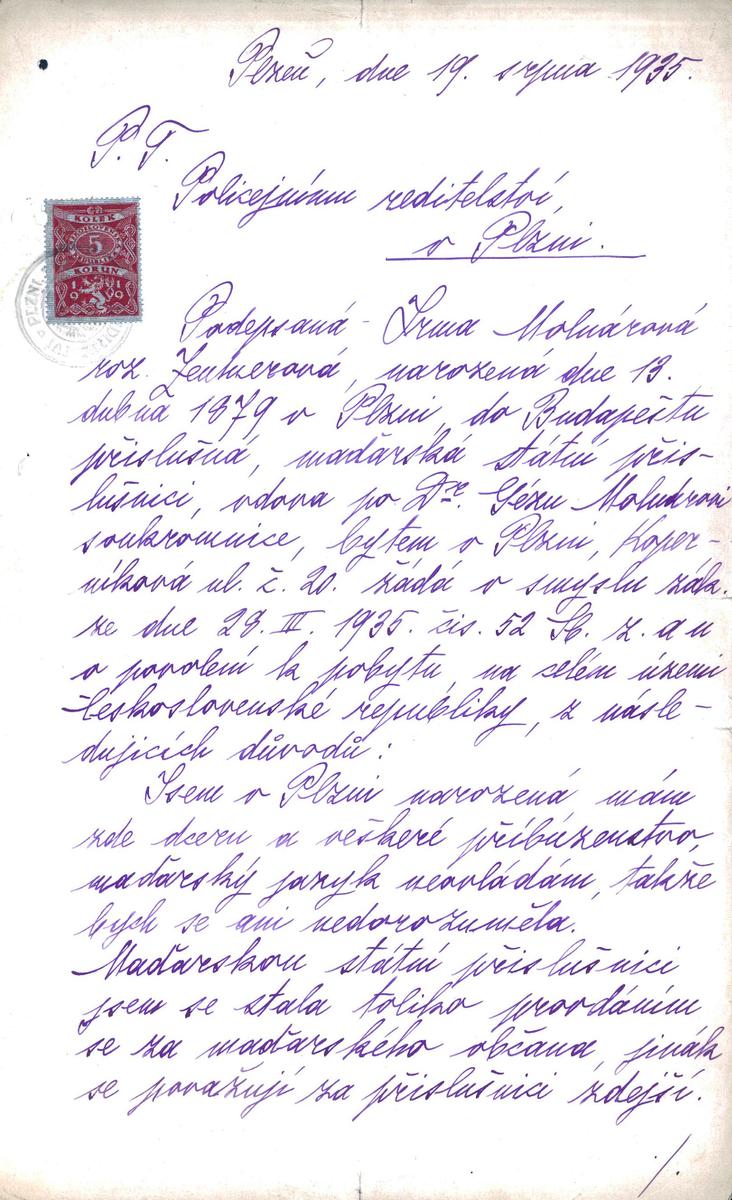 Plzeň, dne 19. srpna 1935.
P. T.
Policejnímu reditelství,
v Plzni.
KOLEK
ČESKOSLOVENSKÁ
5
REPUBLIKA
KORUN
1919
PLZNI
Podepsaná - Irma Molnárová
roz. Zentnerová, narozená dne 13.
dubna 1879 v Plzni, do Budapeštu
příslušná, maďarská státní přís-
lušnici, vdova po Dre. Gézu Molnárovi
soukromnice, bytem v Plzni, Koper-
níková ul. č. 20. žádá v smyslu zák.
ze dne 28. III. 1935. čis. 52 Sb. z. a n
o povolení k pobytu, na celém území
Československé republiky, z násle-
dujicích důvodů:
Jsem v Plzni narozená mám
zde dceru a veškeré příbúzenstvo,
maďarský jazyk neovládám, takže
bych se ani nedorozuměla.
Maďarskou státní příslušnici
jsem se stala toliko provdáním
se za maďarského občana, jinák
se považují za příslušnici zdejší.
./.